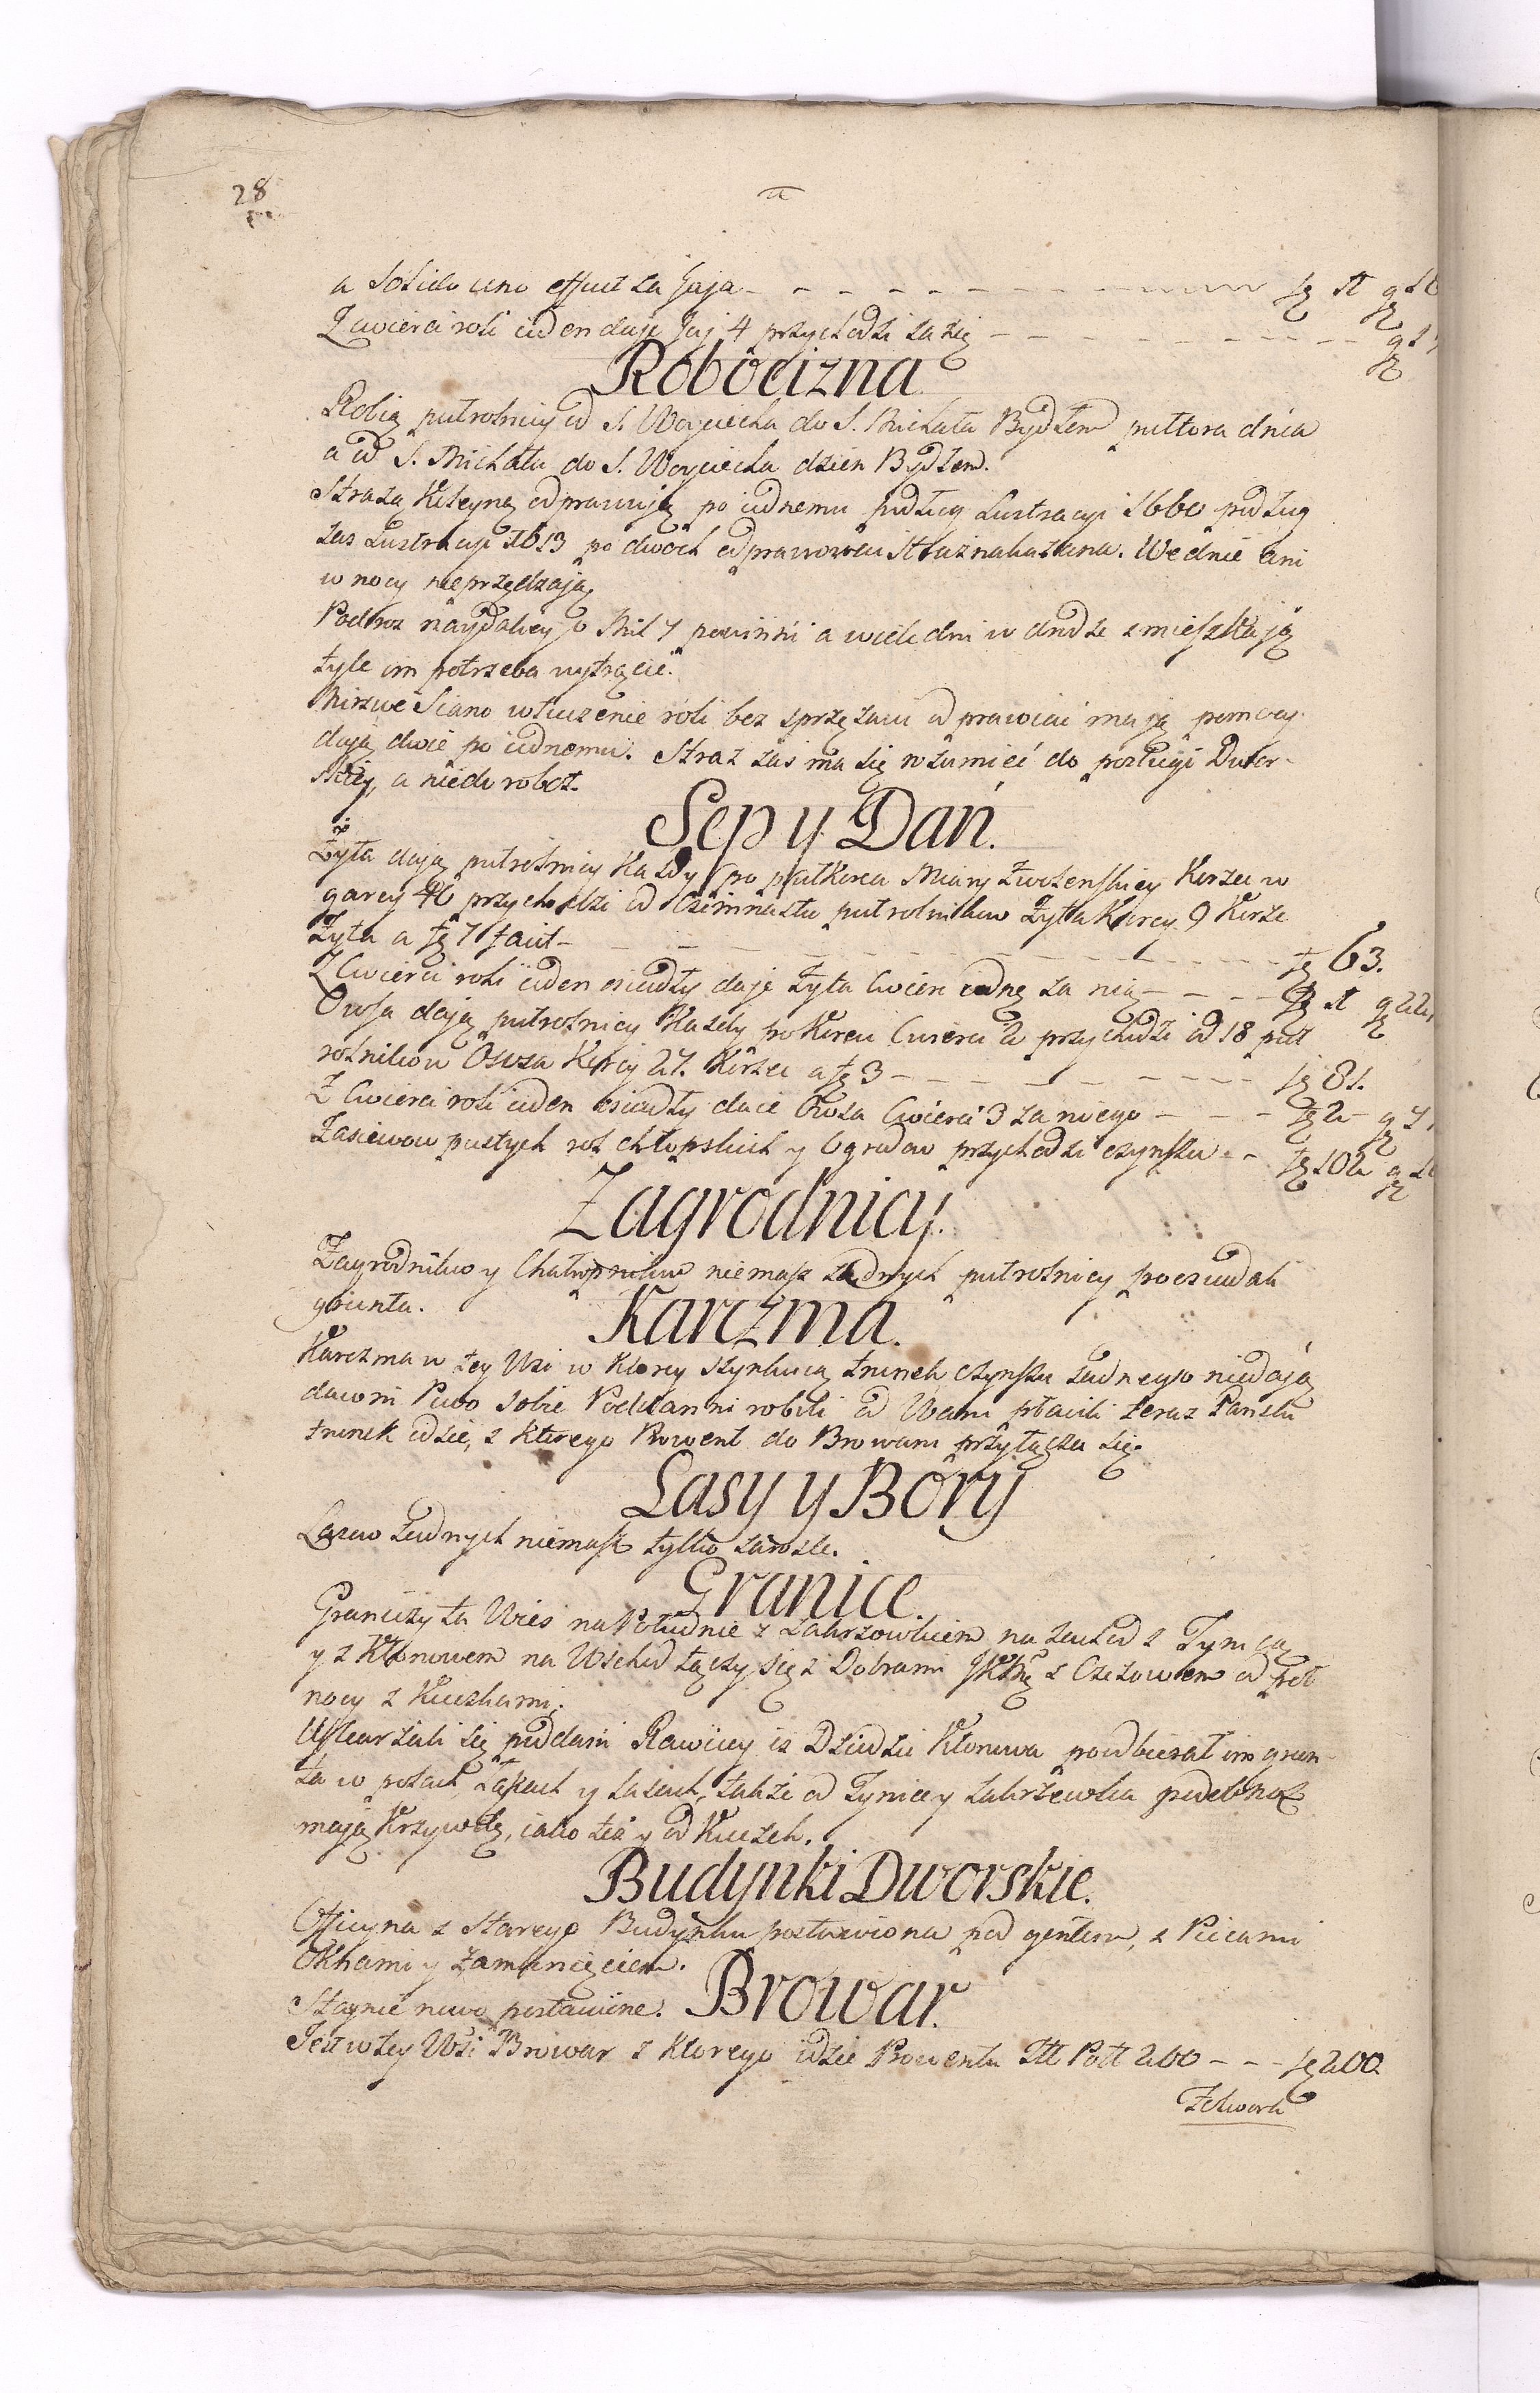 28
a solido uno efficit za Jaja - - - - fę st g 16
Z cwierci roli ieden daje Jaj 4 przychodzi za nię - - - - g 1
Robocizna
Robią pułrolnicy od S. Woyciecha do S. Michała Bydłem pułtora dnia
a od S. Michała do S. Woyciecha dzien Bydłem.
Strażą Koleyną odprawują po iednemu podług Lustracyi 1660 podług
zas Lustracyi 1613 po dwoch odprawować Straż nakazana. We dnie ani
w nocy nieprzędzają
Podroz naydaley o Mil 7 powinni a wiele dni w drodze zmieszkają
tyle im potrzeba wytrącić.
Mirzwę Siano włuczenie roli bez sprzężaiu odprawiać mają pomocy
dają dwie po iednemu. Straz zas ma się rozumieć do posługi Dwor-
skiey, a niedo robot.
Sep y Dań.
Żyta dają pułrolnicy Kazdy po pułkorca Miary Zwolenskiey Korzec w
garcy 46 przychodzi od Osiemnastu pułrolnikow Żyta Korcy 9 Korzec
Żyta a fę 7 facit - - - - fę 63.
Z Cwierci roli ieden osiadły daje żyta Cwierć iedną za nią - - - fę st g 22
Owsa dają pułrolnicy Kazdy po Korcu Cwierci 2 przychodzi od 18 puł
rolnikow Owsa Korcy 27. Korzec a fę 3 - - - - fę 81.
Z Cwierci roli ieden osiadły daie Owsa Cwierci 3 za niego - - - fę 2 - g 7
Zasiewow pustych rol chłopskich y Ogrodow przychodzi czynszu - - fę 102 g 1
Zagrodnicy.
Zagrodnikow y Chałupnikow niemasz zadnych pułrolnicy poosiadali
grunta.
Karczma.
Karczma w tey Wsi w Ktorey szynkuią trunek czynszu zadnego niedają
dawni Piwo sobie Poddanni robili od Waru płacili teraz Panski
trunek idzie, z Ktorego Prowent do Browaru przyłącza się.
Lasy y Bory
Lasow zadnych niemasz tylko zarosle.
Granice.
Graniczy ta Wies na Południe z Zakrzowkiem na Zachod z Tymicą
y z Kłonowem na Wschod łączy się z Dobrami z Czczowem od puł
nocy z Kuczkami.
Uskarzali się poddani Rawicey iz Dziedzic Kłonowa poodbierał im grun-
ta w polach, Łąkach y Lasach, także od Tynicey Zakrzewka podobnoż
mają Krzywdę, iako tez y od Kuczek.
Budynki Dworskie.
Officyna z Starego Budynku postawiona pod gontem, z Piecami
Oknami y zamknięciem.
Staynie nowo postawione.
Browar.
Jest w tey Wsi Browar z Ktorego idzie Prowentu Złł Poll 200 - - - fę 200.
Folwark